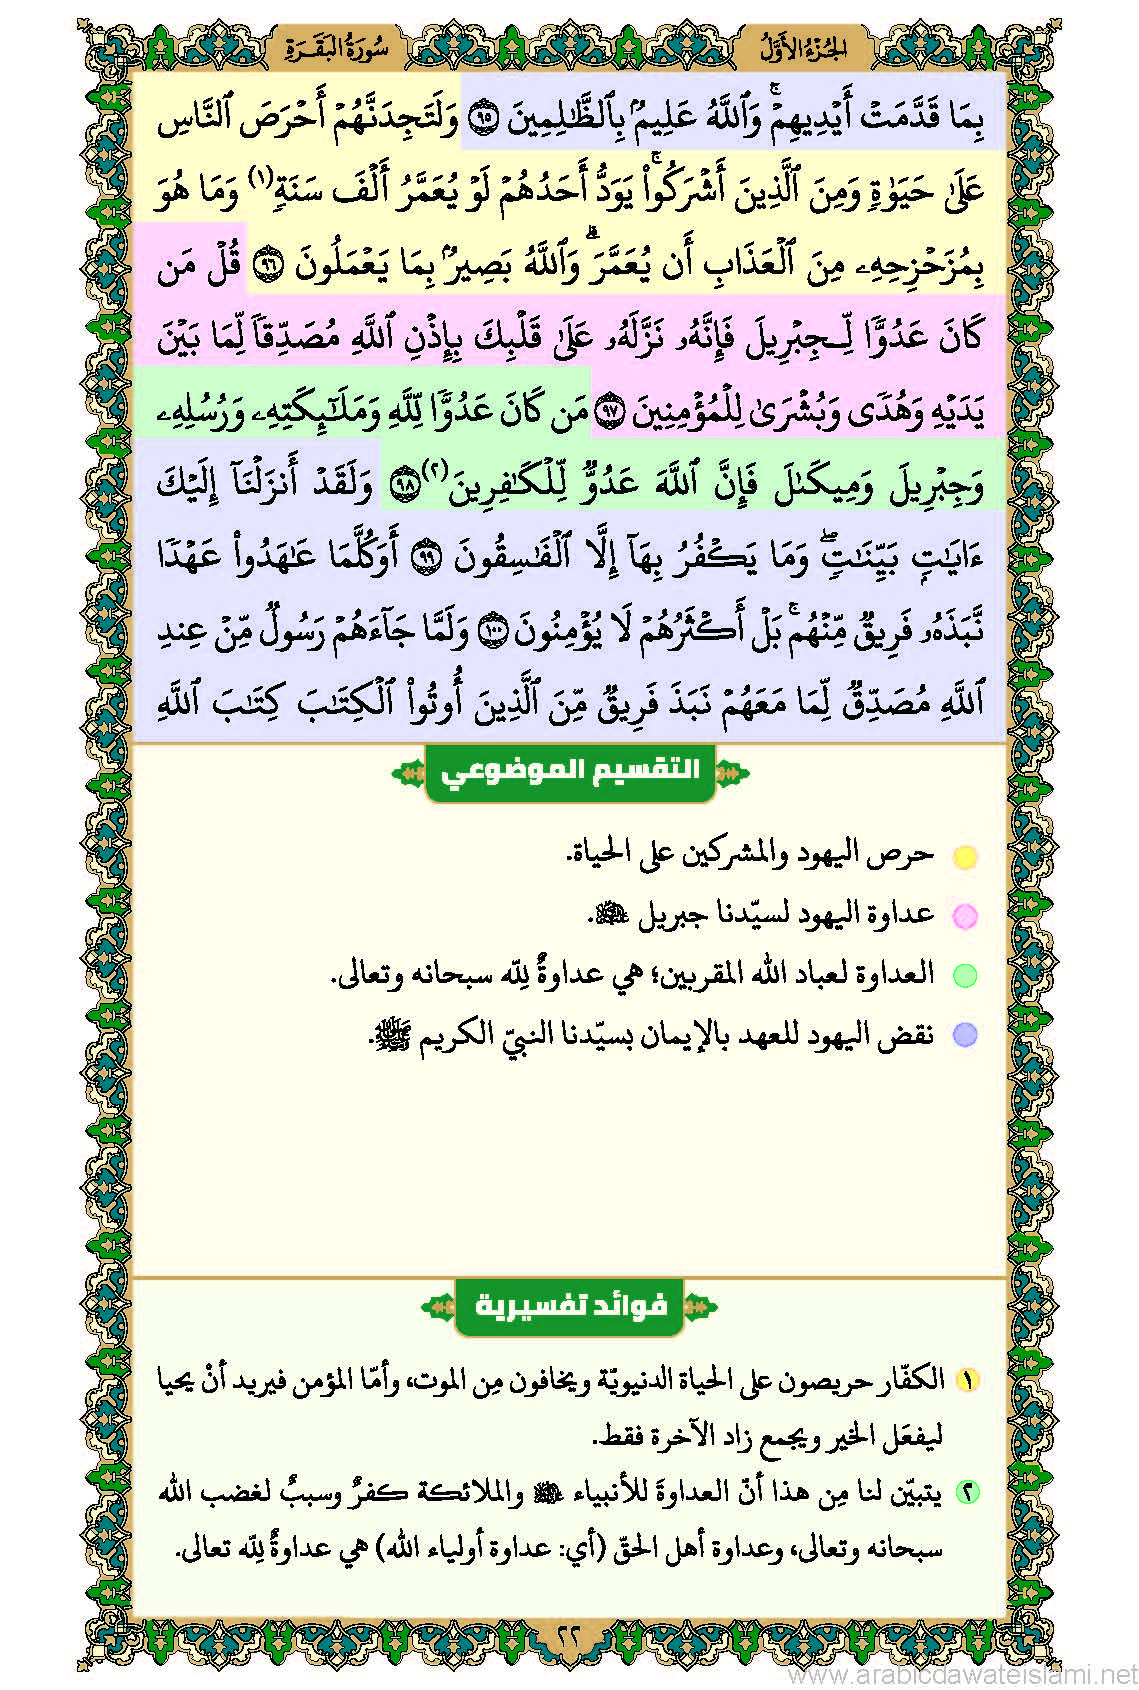 الجُزْءُ الأَوَّلُ
سُورَةُ البَقَرَةِ
بِمَا قَدَّمَتْ أَيْدِيهِمْۚ وَٱللَّهُ عَلِيمُۢ بِٱلظَّٰلِمِينَ ٩٥ وَلَتَجِدَنَّهُمْ أَحْرَصَ ٱلنَّاسِ
عَلَىٰ حَيَوٰةٖ وَمِنَ ٱلَّذِينَ أَشْرَكُواْۚ يَوَدُّ أَحَدُهُمْ لَوْ يُعَمَّرُ أَلْفَ سَنَةٖ(١) وَمَا هُوَ
بِمُزَحْزِحِهِۦ مِنَ ٱلْعَذَابِ أَن يُعَمَّرَۗ وَٱللَّهُ بَصِيرُۢ بِمَا يَعْمَلُونَ ٩٦ قُلْ مَن
كَانَ عَدُوّٗا لِّجِبْرِيلَ فَإِنَّهُۥ نَزَّلَهُۥ عَلَىٰ قَلْبِكَ بِإِذْنِ ٱللَّهِ مُصَدِّقٗا لِّمَا بَيْنَ
يَدَيْهِ وَهُدٗى وَبُشْرَىٰ لِلْمُؤْمِنِينَ ٩٧ مَن كَانَ عَدُوّٗا لِّلَّهِ وَمَلَٰٓئِكَتِهِۦ وَرُسُلِهِۦ
وَجِبْرِيلَ وَمِيكَىٰلَ فَإِنَّ ٱللَّهَ عَدُوّٞ لِّلْكَٰفِرِينَ(٢) ٩٨ وَلَقَدْ أَنزَلْنَآ إِلَيْكَ
ءَايَٰتِۭ بَيِّنَٰتٖۖ وَمَا يَكْفُرُ بِهَآ إِلَّا ٱلْفَٰسِقُونَ ٩٩ أَوَكُلَّمَا عَٰهَدُواْ عَهْدٗا
نَّبَذَهُۥ فَرِيقٞ مِّنْهُمۚ بَلْ أَكْثَرُهُمْ لَا يُؤْمِنُونَ ١٠٠ وَلَمَّا جَآءَهُمْ رَسُولٞ مِّنْ عِندِ
ٱللَّهِ مُصَدِّقٞ لِّمَا مَعَهُمْ نَبَذَ فَرِيقٞ مِّنَ ٱلَّذِينَ أُوتُواْ ٱلْكِتَٰبَ كِتَٰبَ ٱللَّهِ
التقسيم الموضوعي
حرص اليهود والمشركين على الحياة.
عداوة اليهود لسيّدنا جبريل ﵇.
العداوة لعباد الله المقربين؛ هي عداوةٌ لِلّه سبحانه وتعالى.
نقض اليهود للعهد بالإيمان بسيّدنا النبيّ الكريم ﷺ.
فوائد تفسيرية
١ الكفّار حريصون على الحياة الدنيويّة ويخافون مِن الموت، وأمّا المؤمن فيريد أنْ يحيا
ليفعَل الخير ويجمع زاد الآخرة فقط.
٢ يتبيّن لنا مِن هذا أنّ العداوةَ للأنبياء ﵈ والملائكة كفرٌ وسببٌ لغضب الله
سبحانه وتعالى، وعداوة أهل الحقّ (أي: عداوة أولياء الله) هي عداوةٌ لِلّه تعالى.
٢٢
www.arabicdawateislami.net